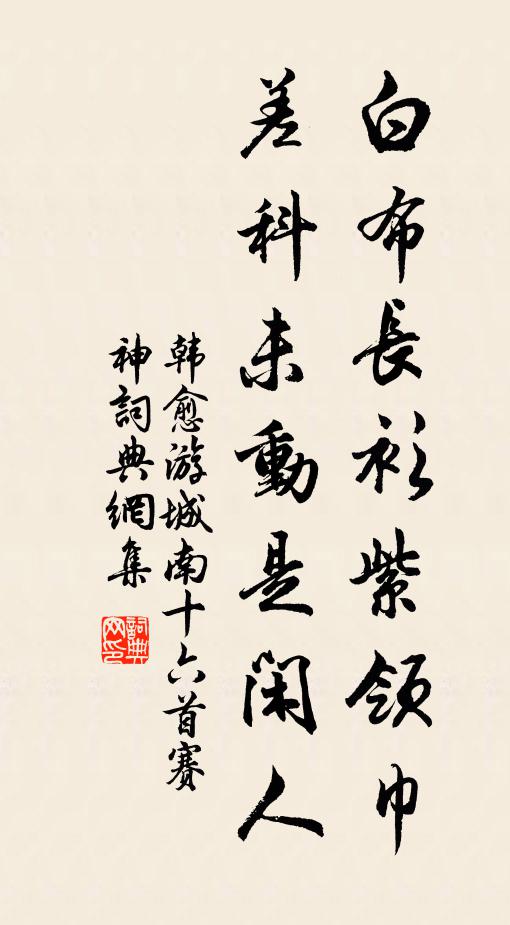 白布長衫紫領巾
差科未動是閑人
韩愈游城南十六首賽
神詞典網集
詞典
网印